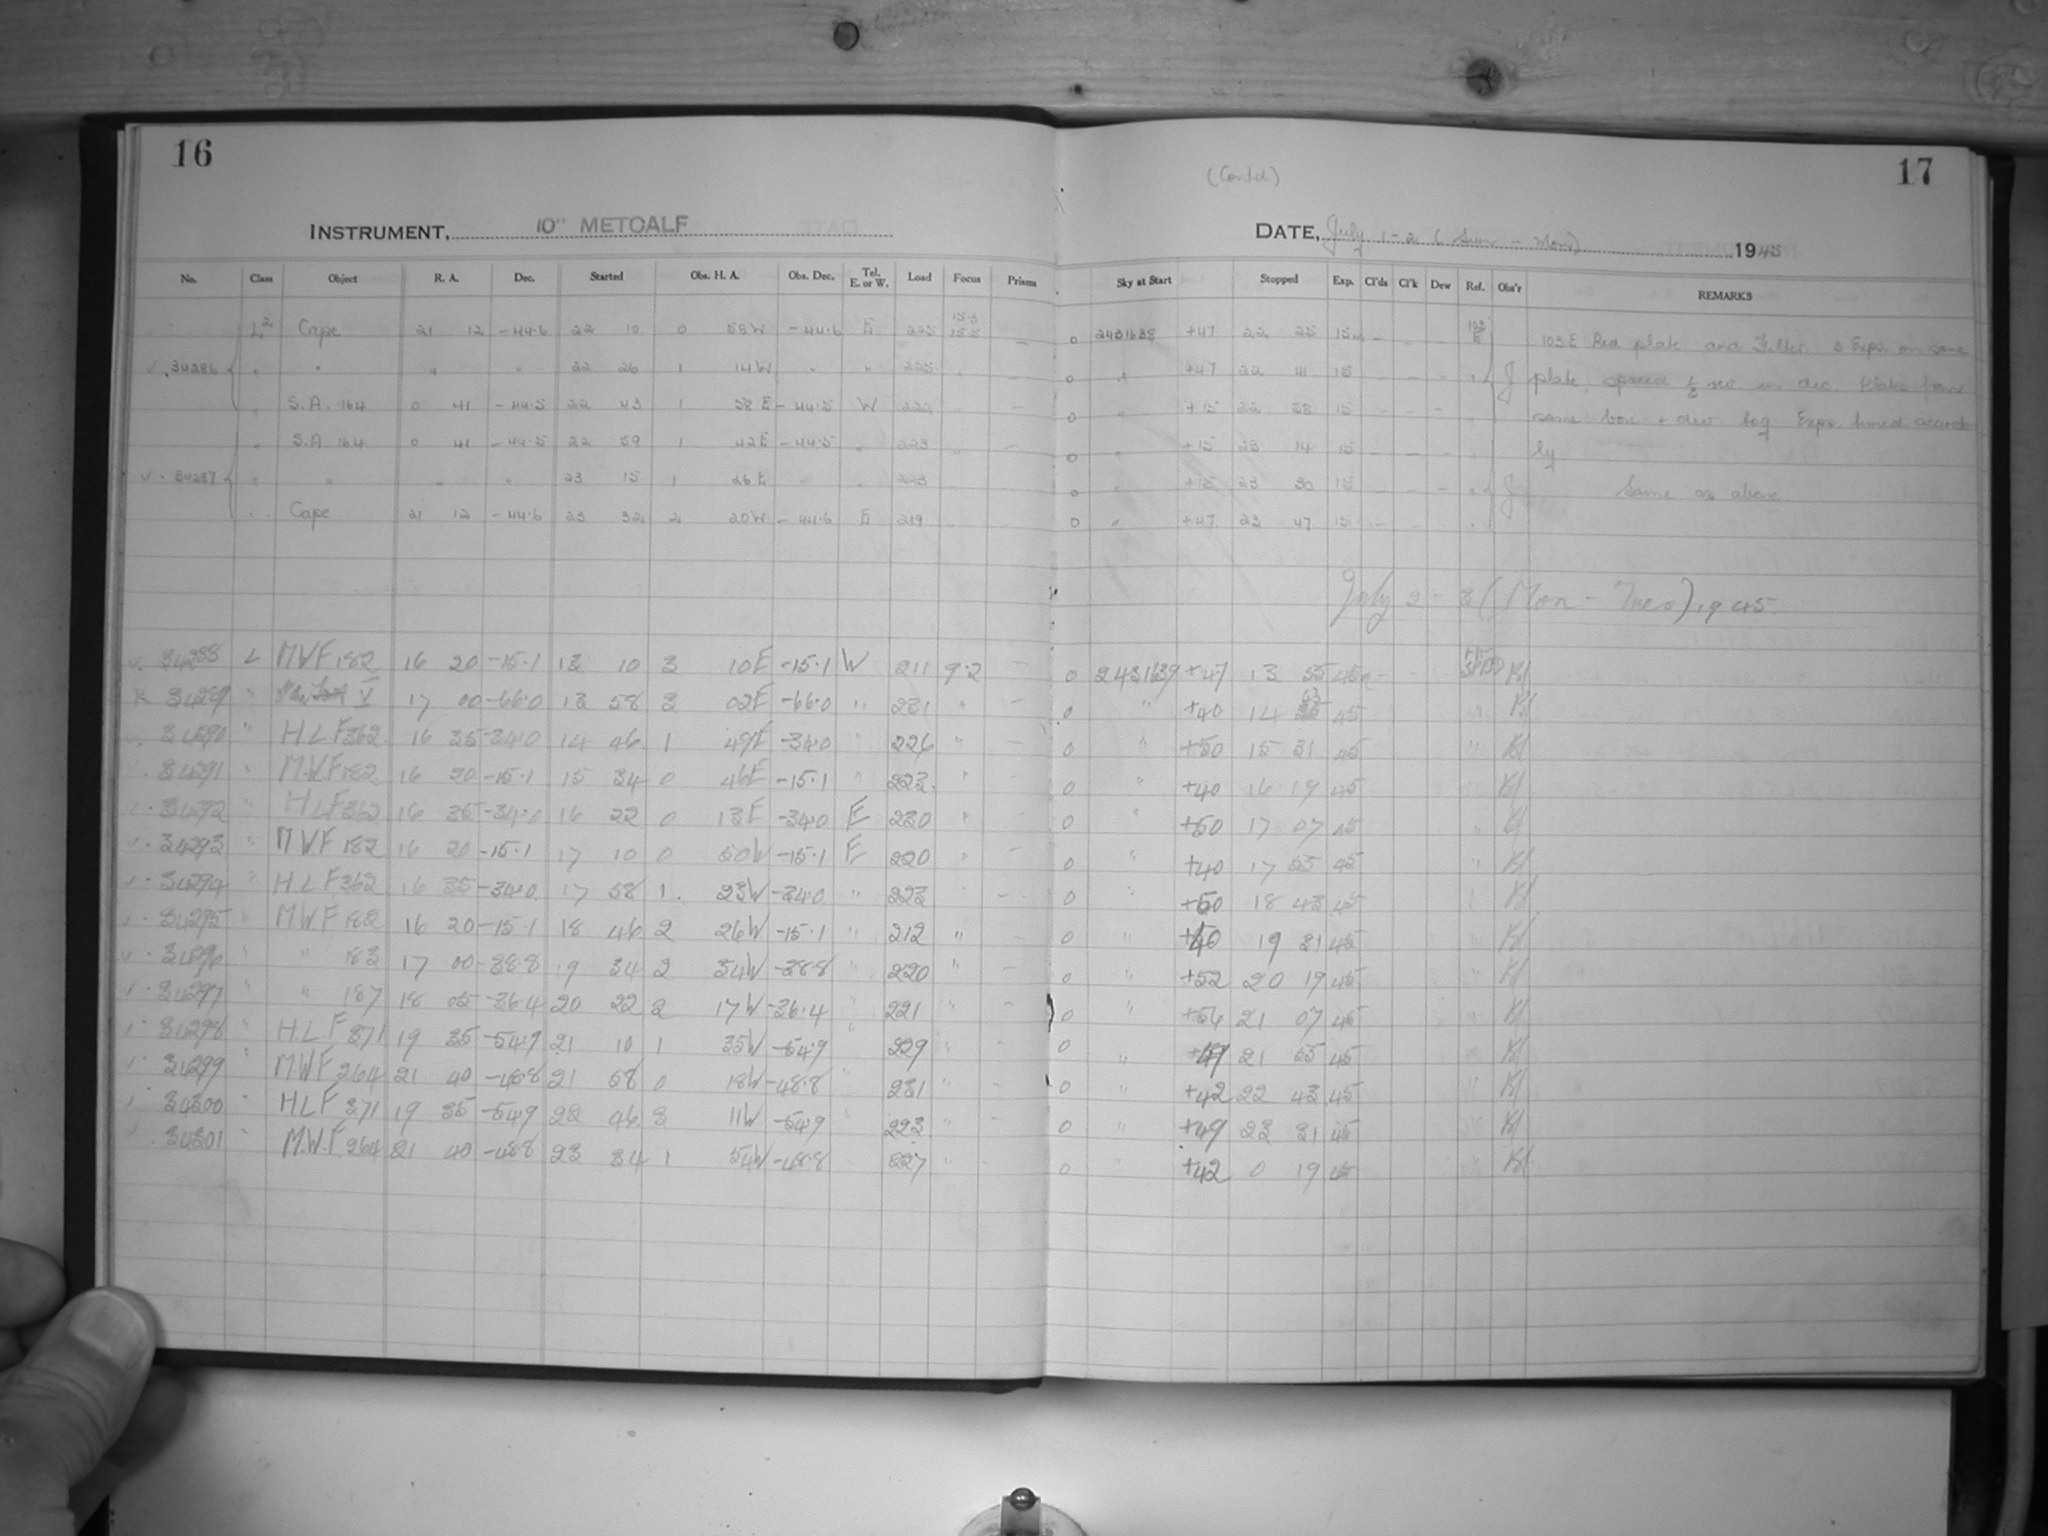 16
INSTRUMENT, 10" METCALF
No. Class Object R. A. Dec. Started Obs. H. A. Obs. Dec. Tel. E. or W. Load Focus Prisms
L2 Cape 21 12 -44.6 22 10 0 58W -44.6 E 225 15.5
34286 " " " " 22 26 1 14W " " 225
" S.A. 164 0 41 -44.5 22 43 1 58E -44.5 W
" S.A. 164 0 41 -44.5 22 59 1 42E -44.5 " 223
34287 " " " " 23 15 1 26E " " 223
Cape 21 12 -44.6 23 32 2 20W -44.6 E 219
34288 L MWF 182 16 20 -15.1 13 10 3 10E -15.1 W 211 9.2 -
34289 " V 17 00 -66.0 13 58 3 02E -66.0 " 231 " -
34290 " HLF 362 16 35 -34.0 14 46 1 49E -34.0 " 226 " -
34291 " MWF 182 16 20 -15.1 15 34 0 46E -15.1 " 223 " -
34292 " HLF 362 16 35 -34.0 16 22 0 13E -34.0 E 230 " -
34293 " MWF 182 16 20 -15.1 17 10 0 50W -15.1 E 220 " -
34294 " HLF 362 16 35 -34.0 17 58 1 23W -34.0 " 223 -
34295 " MWF 182 16 20 -15.1 18 46 2 26W -15.1 " 212 " -
34296 " " 183 17 00 -38.8 19 34 2 34W -38.8 " 220 " -
34297 " " 187 18 05 -36.4 20 22 2 17W -36.4 " 221 " -
34298 " H.L.F 371 19 35 -54.9 21 10 1 35W -54.9 " 229 " -
34299 " MWF 264 21 40 -48.8 21 58 0 18W -48.8 " 231 " -
34300 " HLF 371 19 35 -54.9 22 46 3 11W -54.9 " 223 " -
34301 " M.W.F. 264 21 40 -48.8 23 34 1 54W -48.8 227 " -
17
(Contd)
DATE, July 1-2 (Sun - Mon) 1945
Sky at Start Stopped Exp. Cl'ds Cl'k Dew Ref. Obs'r REMARKS
0 2431638 +47 22 25 15m - - - 103E 103E Red plate and Filter 3 Exps. on same
0 " +47 22 41 15 - - - " J plate, spaced in dec. Plates from
0 " +15 22 58 15 - - - same box + dev. tog Exps. timed accurate
0 " +15 23 14 15 - - - ly.
0 " +15 23 30 15 - - - " J Same as above
0 " +47 23 47 15 - -
July 2 - 3 (Mon - Tues), 1945
0 2431639 +47 13 55 45m -
0 " +40 14 43 45 "
0 " +50 15 31 45 "
0 " +40 16 19 45 "
0 " +50 17 07 45 "
0 " +40 17 55 45 "
0 " +50 18 43 45
0 " +40 19 31 45 "
0 " +52 20 19 45 "
0 " +54 21 07 45 "
0 " +49 21 55 45 "
0 " +42 22 43 45 "
0 " +49 23 31 45 "
0 " +42 0 19 45 "